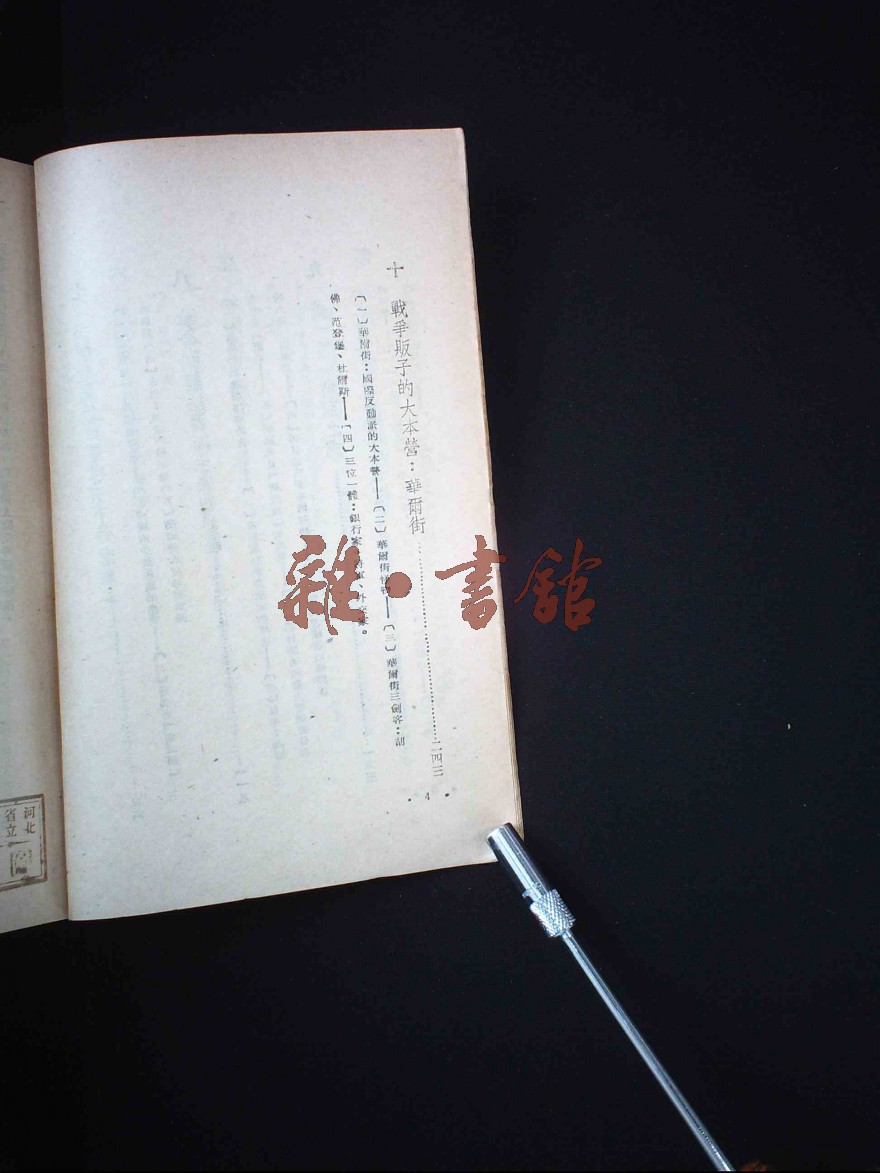 十　戰爭販子的大本營：華爾街……………………二四三
〔一〕華爾街：國際反動派的大本營——〔二〕華爾街——〔三〕華爾街三劍客：胡
佛、范登堡、杜爾斯——〔四〕三位一體：銀行家、外交家。
•4•
雜•書館
河北
省立